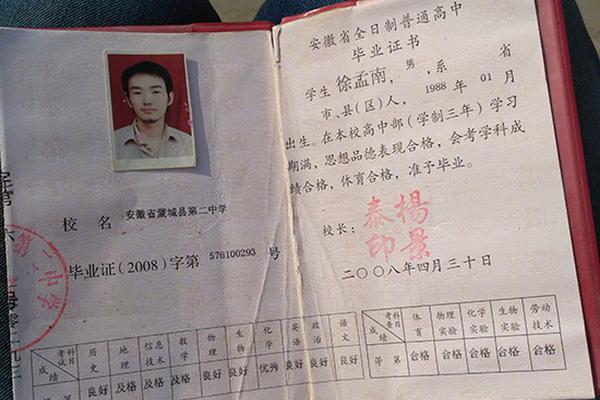 校 名 安徽省蒙城县第二中学
毕业证(2008)字第 576100293 号
第二中学
考试科目 历史 地理 信息技术 数学 物理 生物 化学 英语 政治 语文
成绩 良好 及格 及格 及格 良好 良好 优秀 良好 良好 良好
安徽省全日制普通高中
毕业证书
学生 徐孟南, 男, 系 省
市、县(区)人, 1988 年 01 月
出生。在本校高中部(学制三年)学习
期满, 思想品德表现合格, 会考学科成
绩合格, 体育合格, 准予毕业。
校长: 杨景泰印
二〇〇八年四月三十日
考查科目 体育 物理实验 化学实验 生物实验 劳动技术
成绩
等 第 合格 合格 合格 合格 合格